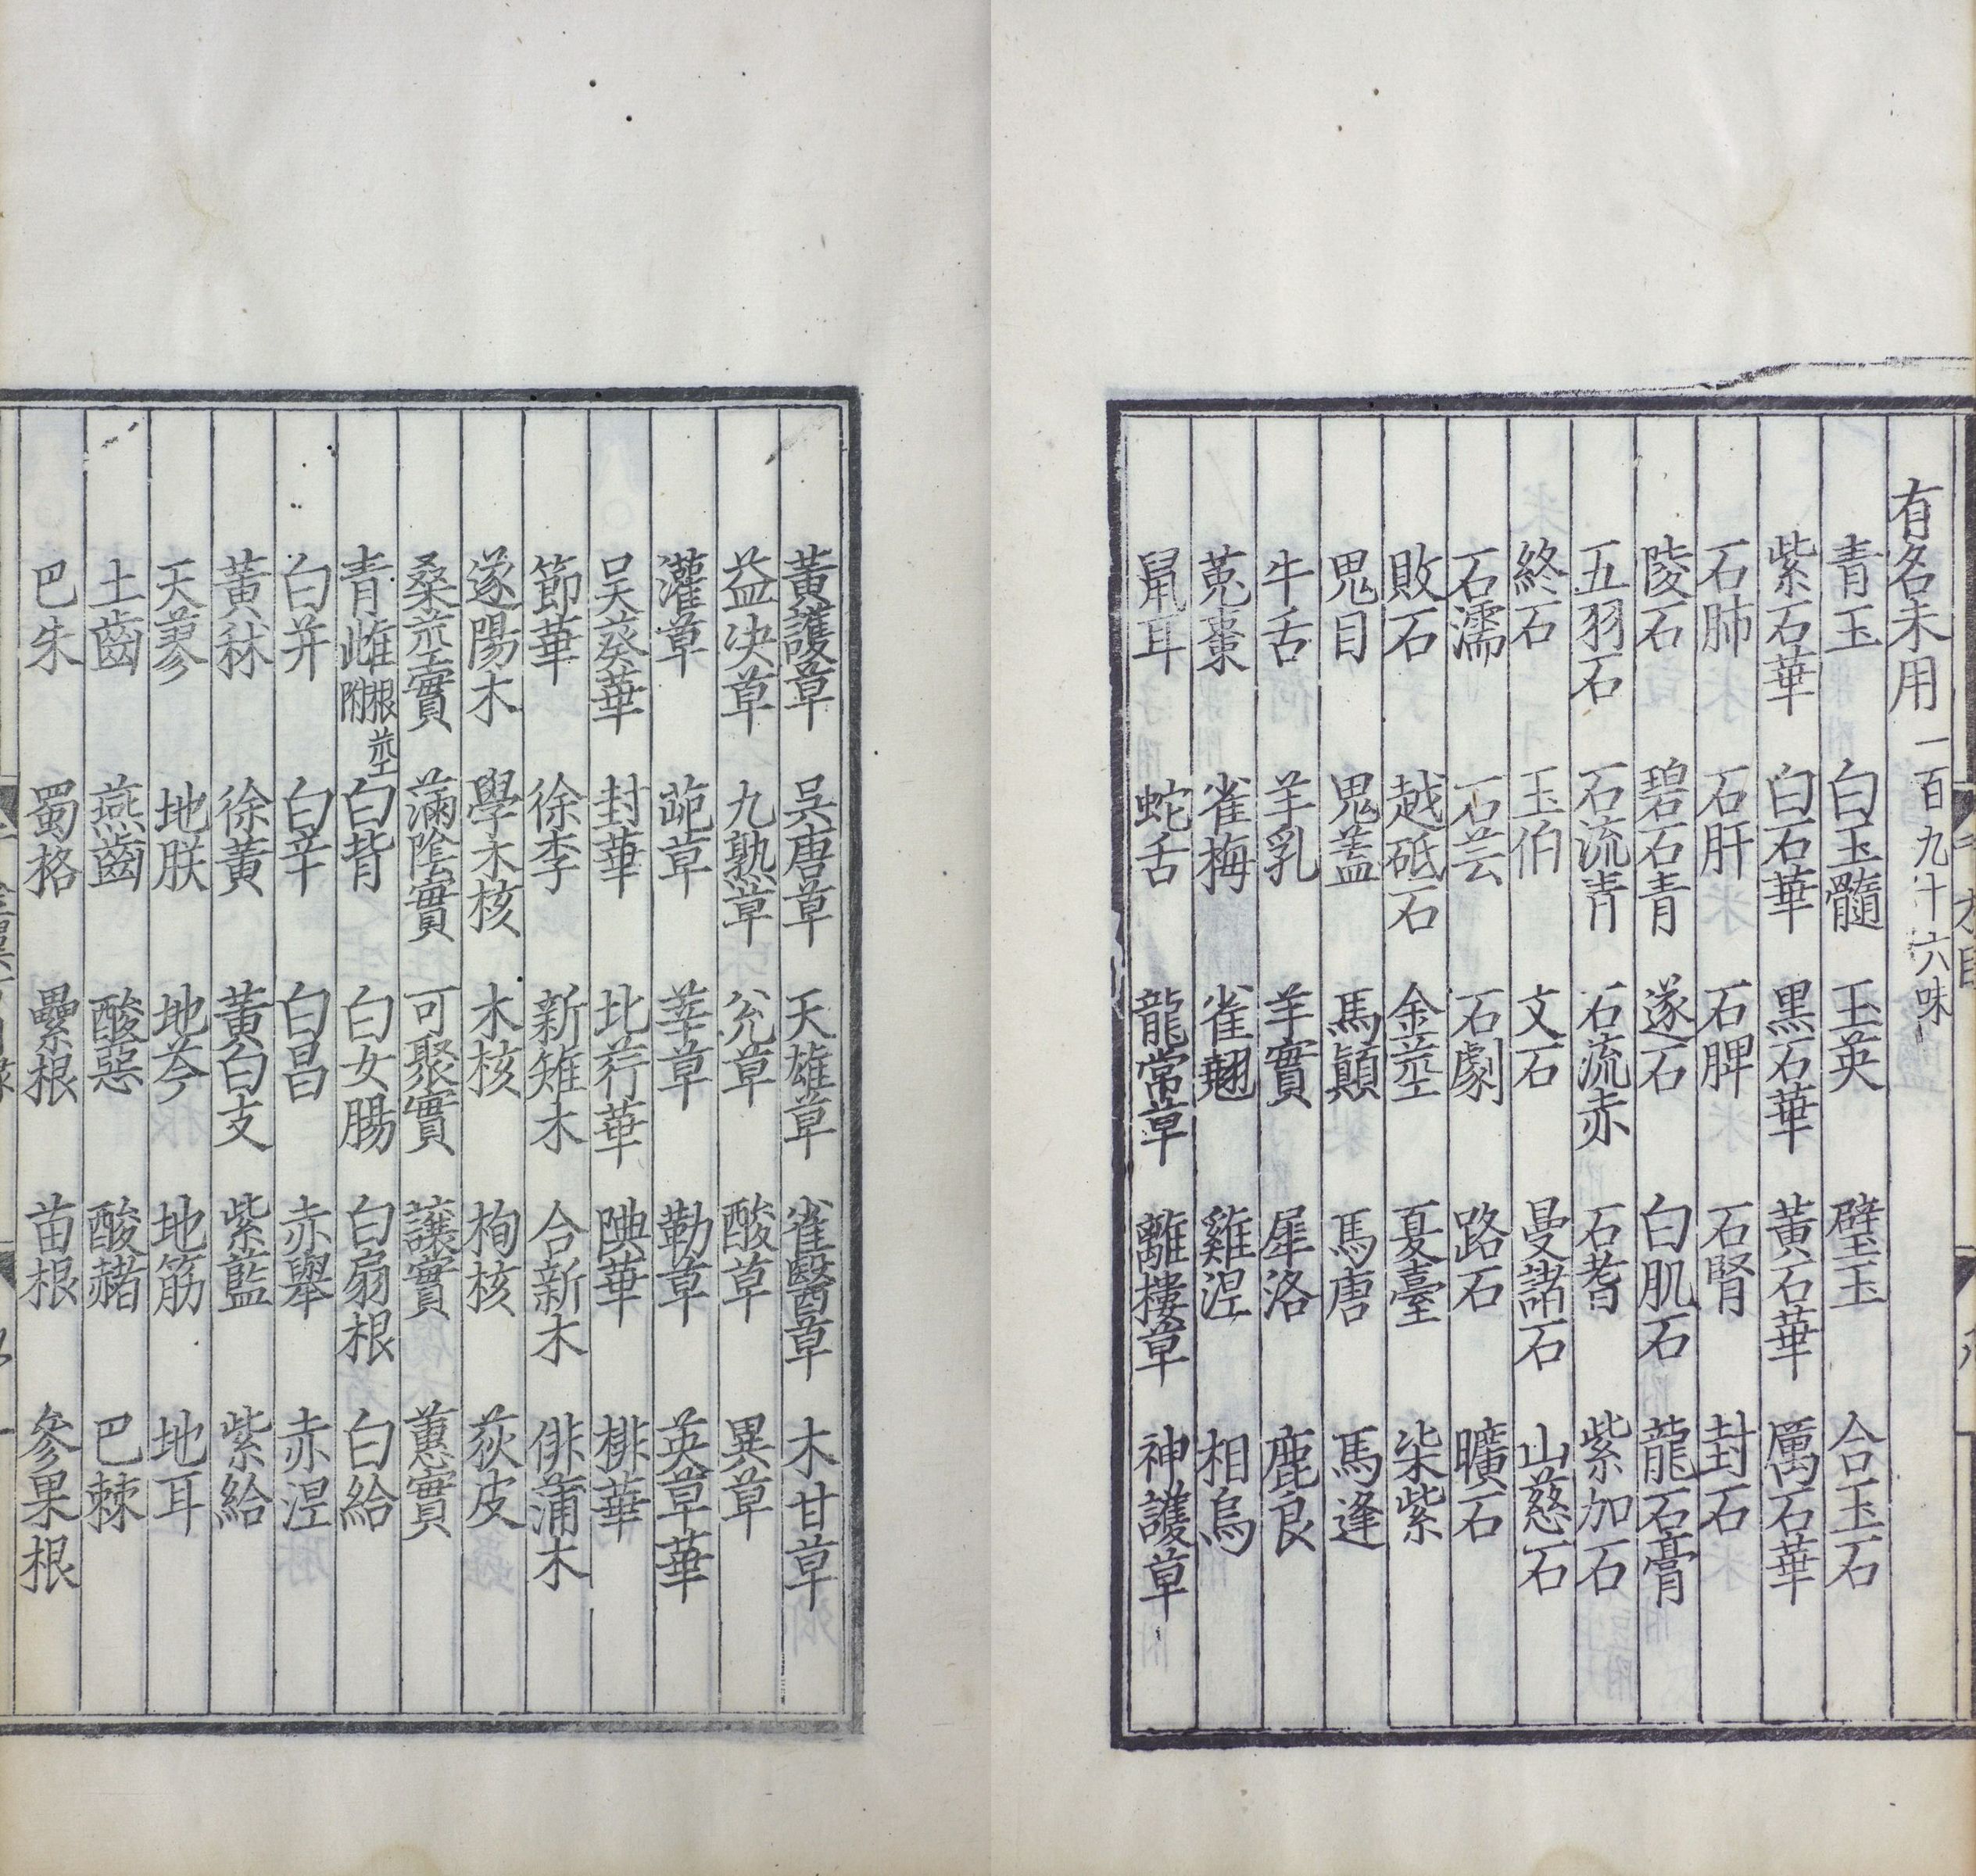 有名未用 一百九十六味
青玉 白玉髓 玉英 璧玉 合玉石
紫石華 白石華 黑石華 黃石華 厲石華
石肺 石肝 石脾 石腎 封石
陵石 碧石青 遂石 白肌石 龍石膏
五羽石 石流青 石流赤 石耆 紫加石
終石 玉伯 文石 曼諸石 山慈石
石濡 石芸 石劇 路石 曠石
敗石 越砥石 金莖 夏臺 柒紫
鬼目 鬼蓋 馬顛 馬唐 馬逢
牛舌 羊乳 羊實 犀洛 鹿良
菟棗 雀梅 雀翹 雞涅 相烏
鼠耳 蛇舌 龍常草 離樓草 神護草
黃護草 吳唐草 天雄草 雀醫草 木甘草
益决草 九熟草 兊草 酸草 異草
灌草 茈草 莘草 勒草 英草華
吴葵華 封華 北荇華 腆華 棑華
節華 徐李 新雉木 合新木 俳蒲木
遂陽木 學木核 木核 栒核 荻皮
桑莖實 滿陰實 可聚實 讓實 蕙實
青雌 根莖附 白背 白女腸 白扇根 白給
白并 白辛 白昌 赤舉 赤涅
黃秫 徐黃 黃白支 紫藍 紫給
天蓼 地朕 地芩 地筋 地耳
土齒 燕齒 酸惡 酸赭 巴棘
巴朱 蜀格 纍根 苗根 參果根